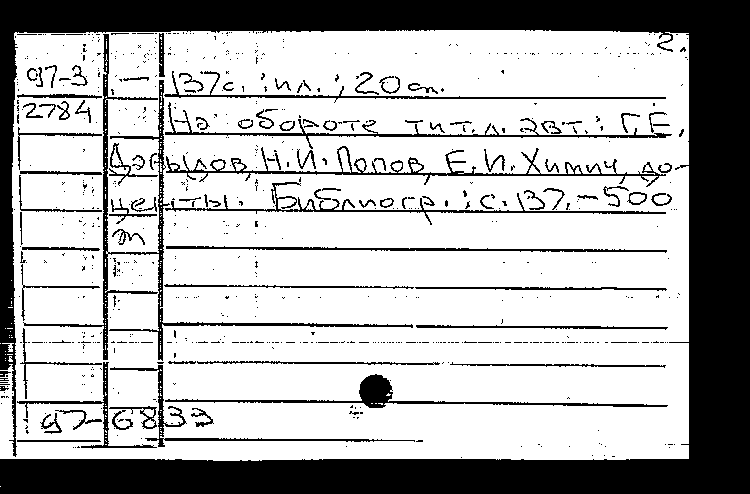 2.
97-3 — 137с. : ил. ; 20 см.
2784 На обороте тит. л. авт.: Г.Е.
Давыдов, Н.И. Попов, Е.И. Химич, до-
центы. Библиогр.: с. 137. – 500
97-6833